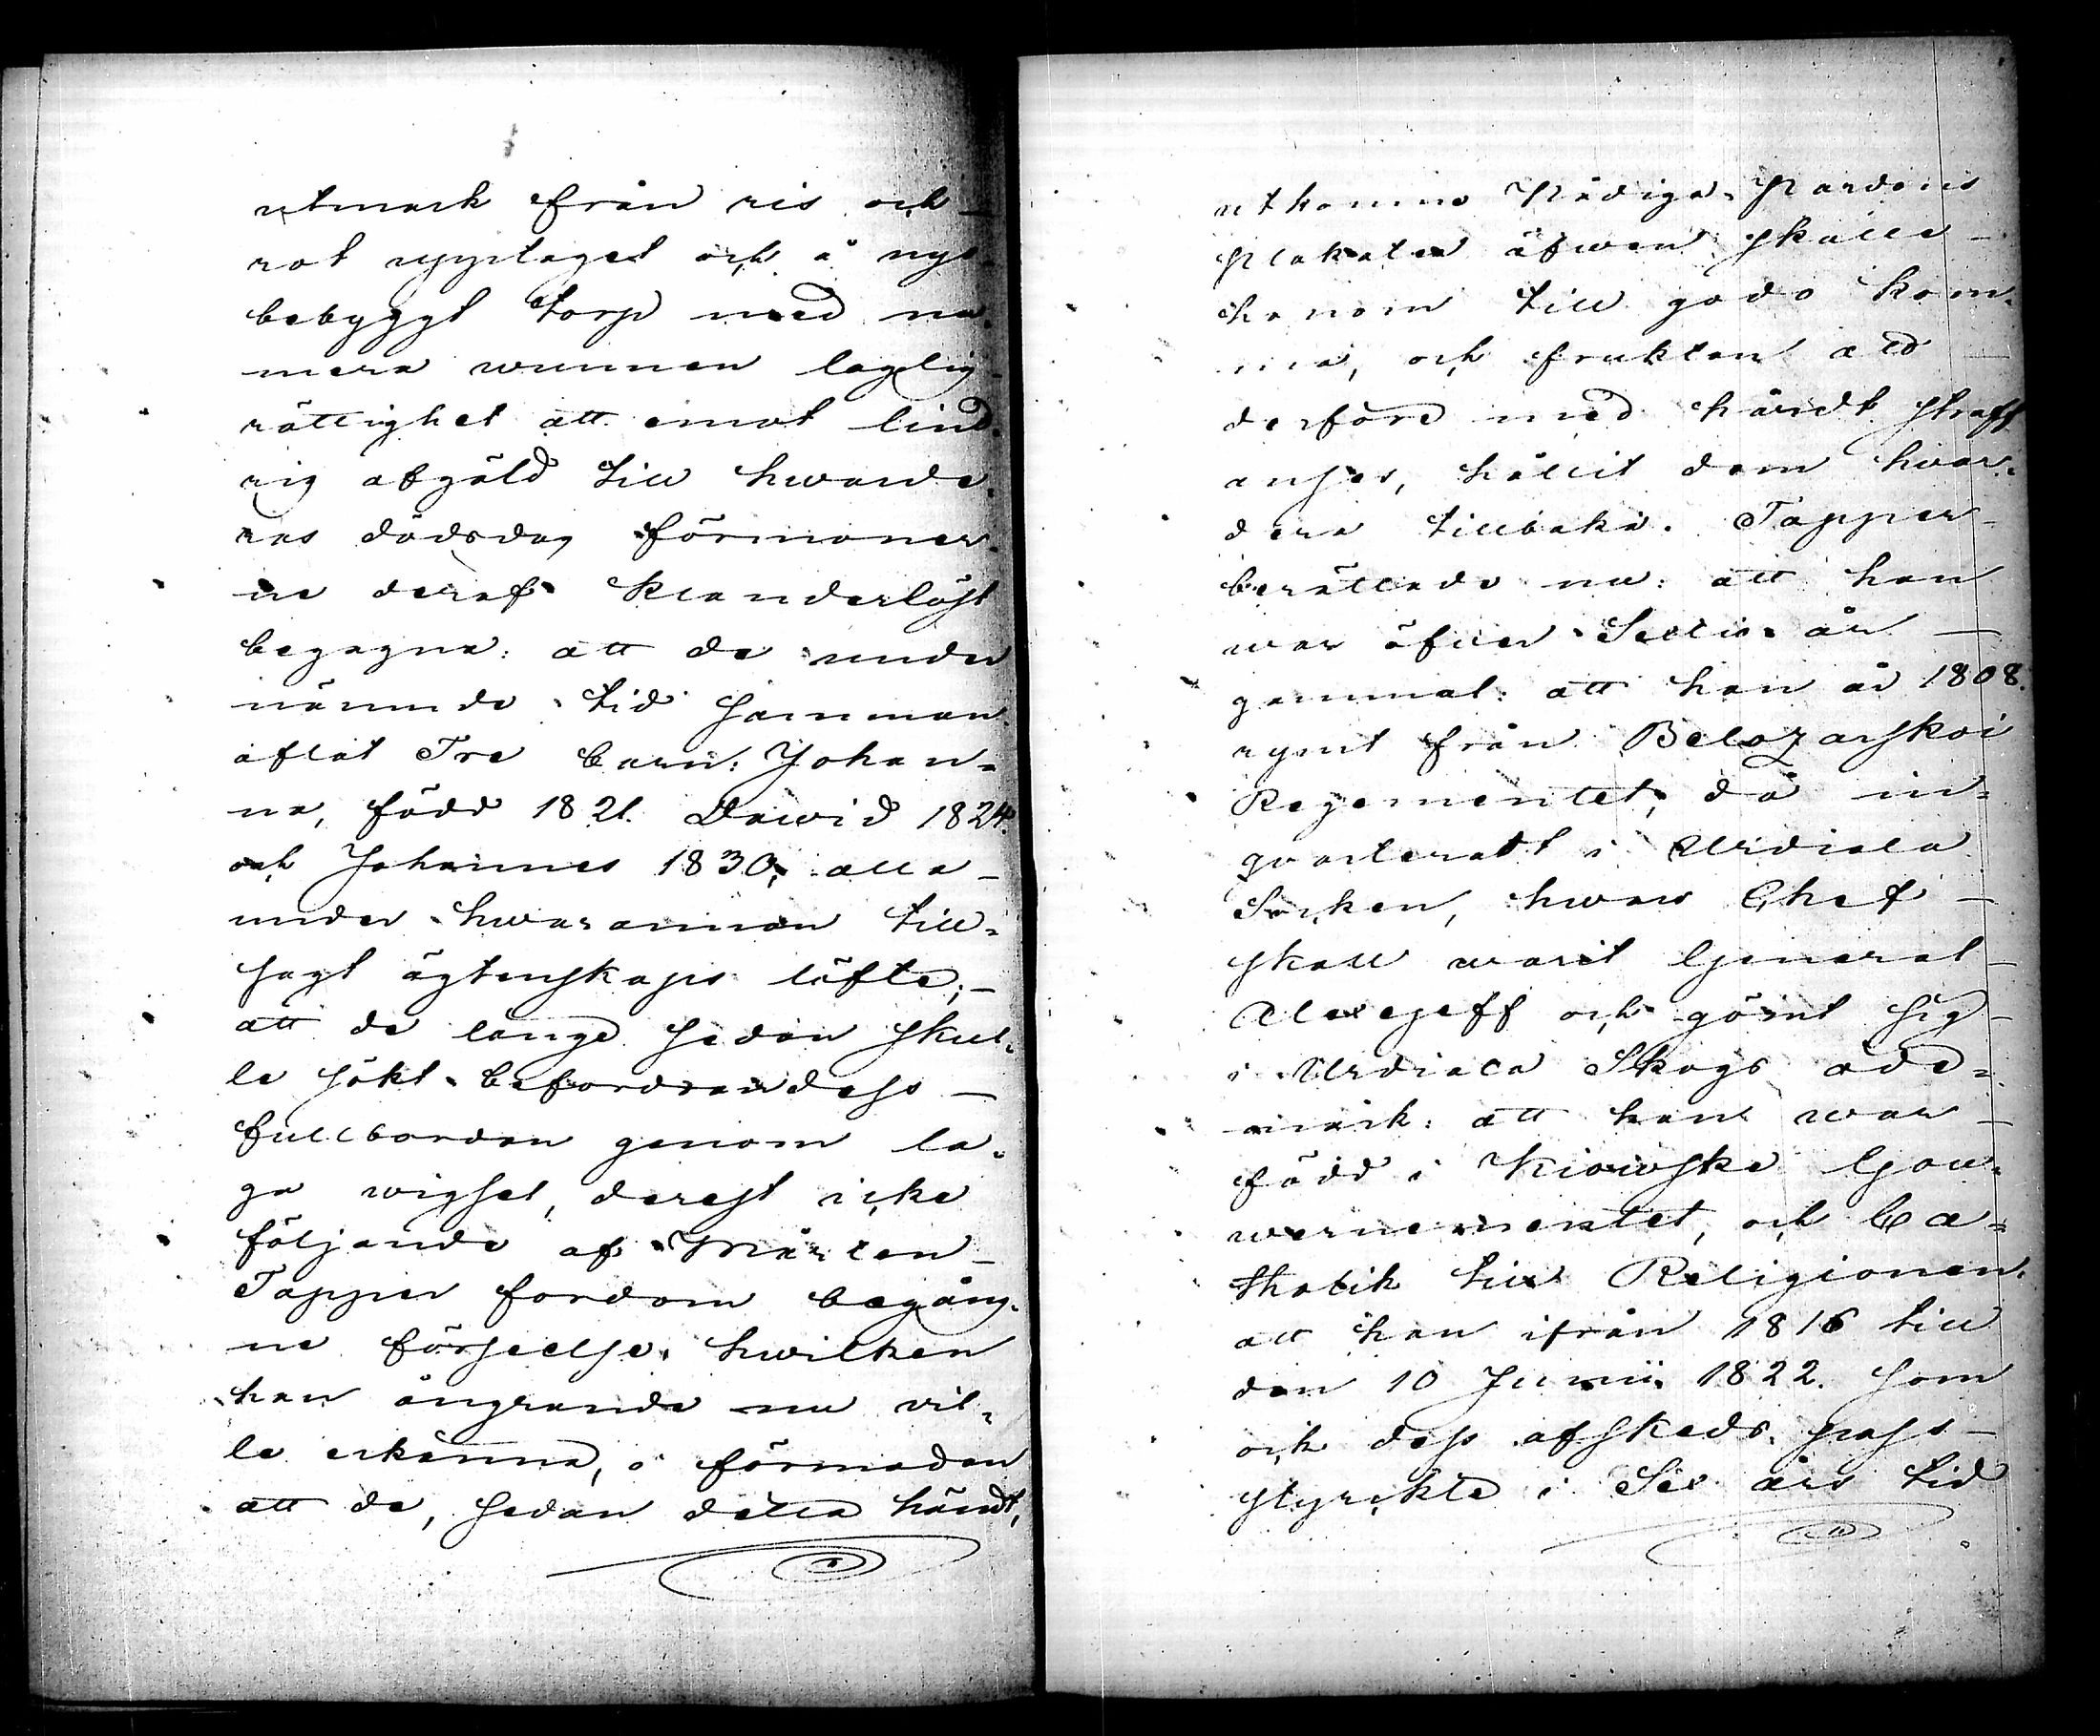 utmark från ris och
rot upptaget och å nyo
bebyggt torp med nu-
mera wunnen laglig
rättighet att emot lind-
rig afgäld till hwarde-
ras dödsdag förmoner-
ne deraf klanderlöst
begagna: att de under
nämnde tid samman
aflat Tre barn: Johan-
na, född 1821. Dawid 1824.
och Johannes 1830, alla
under hwarannan till-
sagt ägtenskaps löfte;
att de länge sedan skul-
le sökt befordran dess
fullbordan genom la-
ga wigsel, derest icke
följande af Mårten
Tapper fordom begång-
ne förseelse, hwilken
han ångrande nu vil-
le erkänna, i förmodan
att de, sedan detta händt,
utkomne Nådiga Pardons
Plakater äfwen skulle
honom till godo kom-
ma, och fruktan att
derföre med hårdt straff
anses, hållit dem hwar-
dera tillbaka. Tapper
berättade nu: att han
war öfwer Sextio år
gammal: att han år 1808.
rymt från Belozerskoi
Regementet, då in-
qvarteradt i Urdiala
Socken, hwars Chef
skall warit General
Alexejeff och gömt sig
i Urdiala Skogs öde-
mark: att han war
född i Kiowska Gou-
wernementet, och Ca-
tholik till Religionen.
att han ifrån 1816 till
den 10 Junii 1822. som
och dess afskeds pass
styrkte i Sex års tid